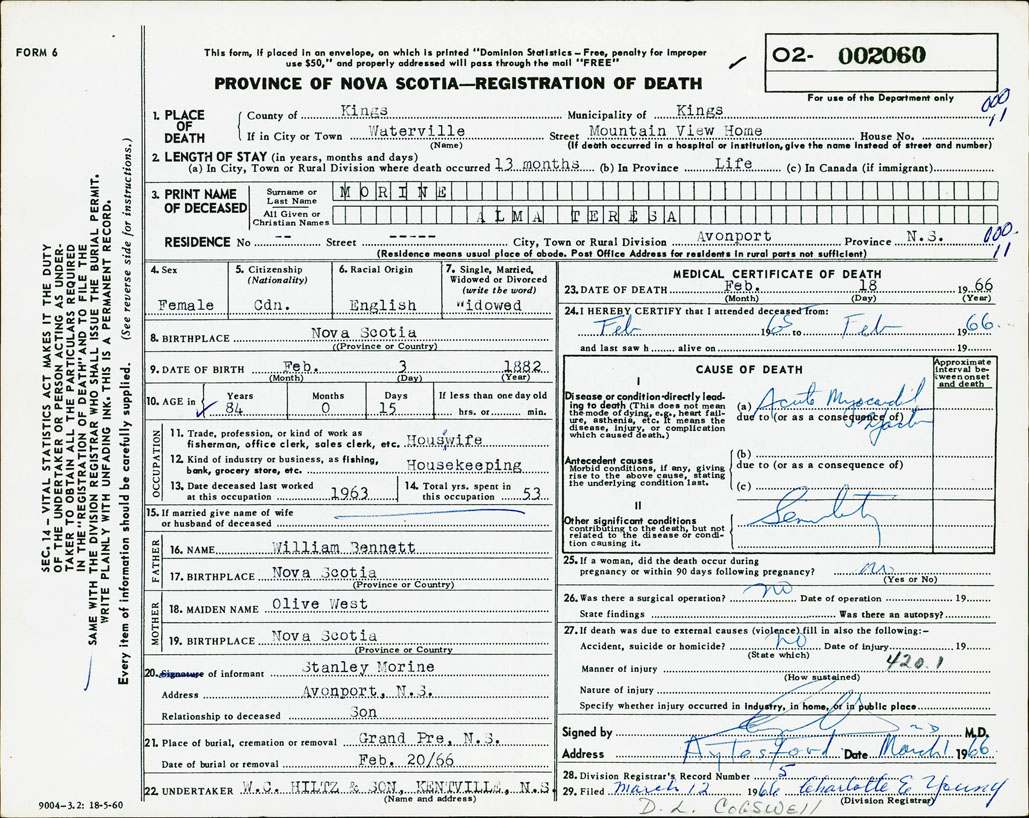 FORM 6
This form, if placed in an envelope, on which is printed "Dominion Statistics – Free, penalty for improper
use $50," and properly addressed will pass through the mail "FREE"
PROVINCE OF NOVA SCOTIA—REGISTRATION OF DEATH
02- 002060
For use of the Department only
SEC. 14 – VITAL STATISTICS ACT MAKES IT THE DUTY
OF THE UNDERTAKER OR PERSON ACTING AS UNDER-
TAKER TO OBTAIN ALL THE PARTICULARS REQUIRED
IN THE "REGISTRATION OF DEATH" AND TO FILE THE
SAME WITH THE DIVISION REGISTRAR WHO SHALL ISSUE THE BURIAL PERMIT.
WRITE PLAINLY WITH UNFADING INK. THIS IS A PERMANENT RECORD.
Every item of information should be carefully supplied. (See reverse side for instructions.)
1. PLACE OF DEATH
County of Kings Municipality of Kings 000 11
If in City or Town Waterville Street Mountain View Home House No.
(Name) (If death occurred in a hospital or institution, give the name instead of street and number)
2. LENGTH OF STAY (in years, months and days)
(a) In City, Town or Rural Division where death occurred 13 months (b) In Province Life (c) In Canada (if immigrant)
3. PRINT NAME OF DECEASED
Surname or Last Name MORINE
All Given or Christian Names ALMA TERESA
RESIDENCE No -- Street ----- City, Town or Rural Division Avonport Province N.S. 000. 11
(Residence means usual place of abode. Post Office Address for residents in rural parts not sufficient)
4. Sex Female
5. Citizenship (Nationality) Cdn.
6. Racial Origin English
7. Single, Married, Widowed or Divorced (write the word) Widowed
8. BIRTHPLACE Nova Scotia
((Province or Country)
9. DATE OF BIRTH Feb. 3 1882
(Month) (Day) (Year)
10. AGE in Years 84 Months 0 Days 15 If less than one day old hrs. or min.
OCCUPATION
11. Trade, profession, or kind of work as
fisherman, office clerk, sales clerk, etc. Houswife
12. Kind of industry or business, as fishing,
bank, grocery store, etc. Housekeeping
13. Date deceased last worked
at this occupation 1963
14. Total yrs. spent in
this occupation 53
15. If married give name of wife
or husband of deceased
FATHER
16. NAME William Bennett
17. BIRTHPLACE Nova Scotia
(Province or Country)
MOTHER
18. MAIDEN NAME Olive West
19. BIRTHPLACE Nova Scotia
(Province or Country
20. Signature of informant Stanley Morine
Address Avonport, N.S.
Relationship to deceased Son
21. Place of burial, cremation or removal Grand Pre, N.S.
Date of burial or removal Feb. 20/66
22. UNDERTAKER W.C. HILTZ & SON, KENTVILLE, N.S.
(Name and address)
9004–3.2: 18-5-60
MEDICAL CERTIFICATE OF DEATH
23. DATE OF DEATH Feb. 18 1966
(Month) (Day) (Year)
24. I HEREBY CERTIFY that I attended deceased from:
Feb 1965 to Feb 1966.
and last saw h alive on 19
CAUSE OF DEATH
Approximate interval between onset and death
I
Disease or condition directly lead-
ing to death (This does not mean
the mode of dying, e.g., heart fail-
ure, asthenia, etc. It means the
disease, injury, or complication
which caused death.)
(a) Acute Myocardil
due to (or as a consequence of)
Antecedent causes
Morbid conditions, if any, giving
rise to the above cause, stating
the underlying condition last.
(b)
due to (or as a consequence of)
(c)
II
Other significant conditions
contributing to the death, but not
related to the disease or condi-
tion causing it.
Senility
25. If a woman, did the death occur during
pregnancy or within 90 days following pregnancy? no
(Yes or No)
26. Was there a surgical operation? no Date of operation 19
State findings Was there an autopsy?
27. If death was due to external causes (violence) fill in also the following:–
Accident, suicide or homicide? no Date of injury 19
(State which)
Manner of injury 420.1
(How sustained)
Nature of injury
Specify whether injury occurred in Industry, in home, or in public place
Signed by M.D.
Address Aylesford Date March 1 1966
28. Division Registrar's Record Number 5
29. Filed March 12 1966 Charlotte E Young
(Division Registrar)
D. L. COGSWELL